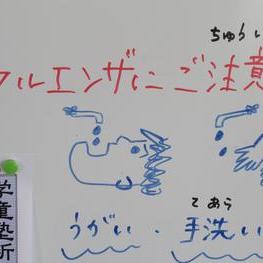 ちゅうい
フルエンザにご注意
てあら
うがい・手洗い
学童塾